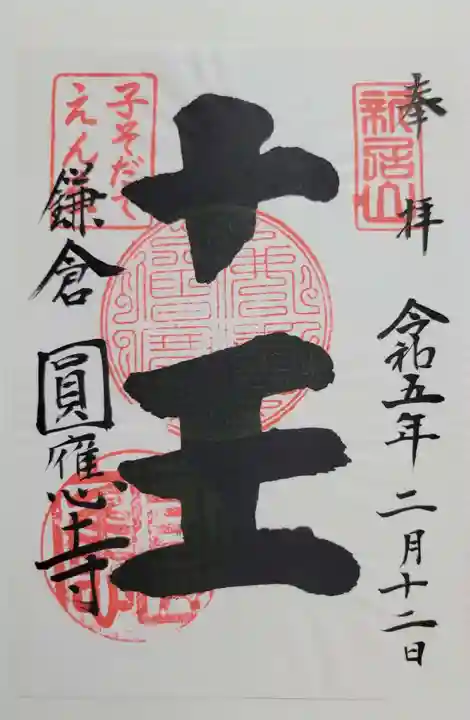 奉拝
令和五年二月十二日
新居山
十王
子そだて
えん
鎌倉
圓應寺